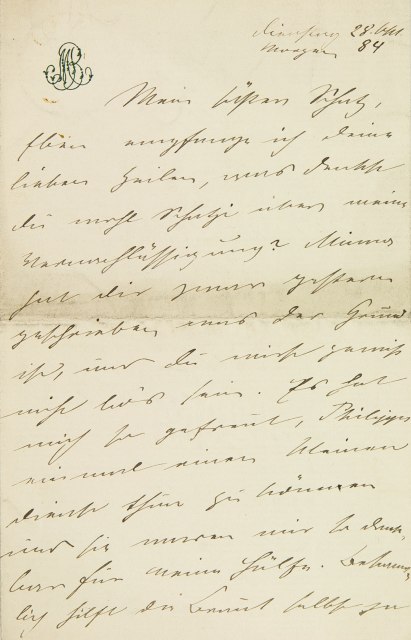 Dienstag 28. Okt
Morgen 84
Mein süßer Schatz,
Eben empfange ich deine
lieben Zeilen, was denkst
du wohl Schatzi über meine
Vernachlässigung? Minna
hat dir zwar gestern
geschrieben was der Grund
ist, und du wirst gewiß
nicht bös sein. Es hat
mich so gefreut, Philipps
einmal einen kleinen
Dienst thun zu können
und sie waren mir so dank-
bar für meine Hülfe. Bekannt-
lich hilft die Braut selbst zu